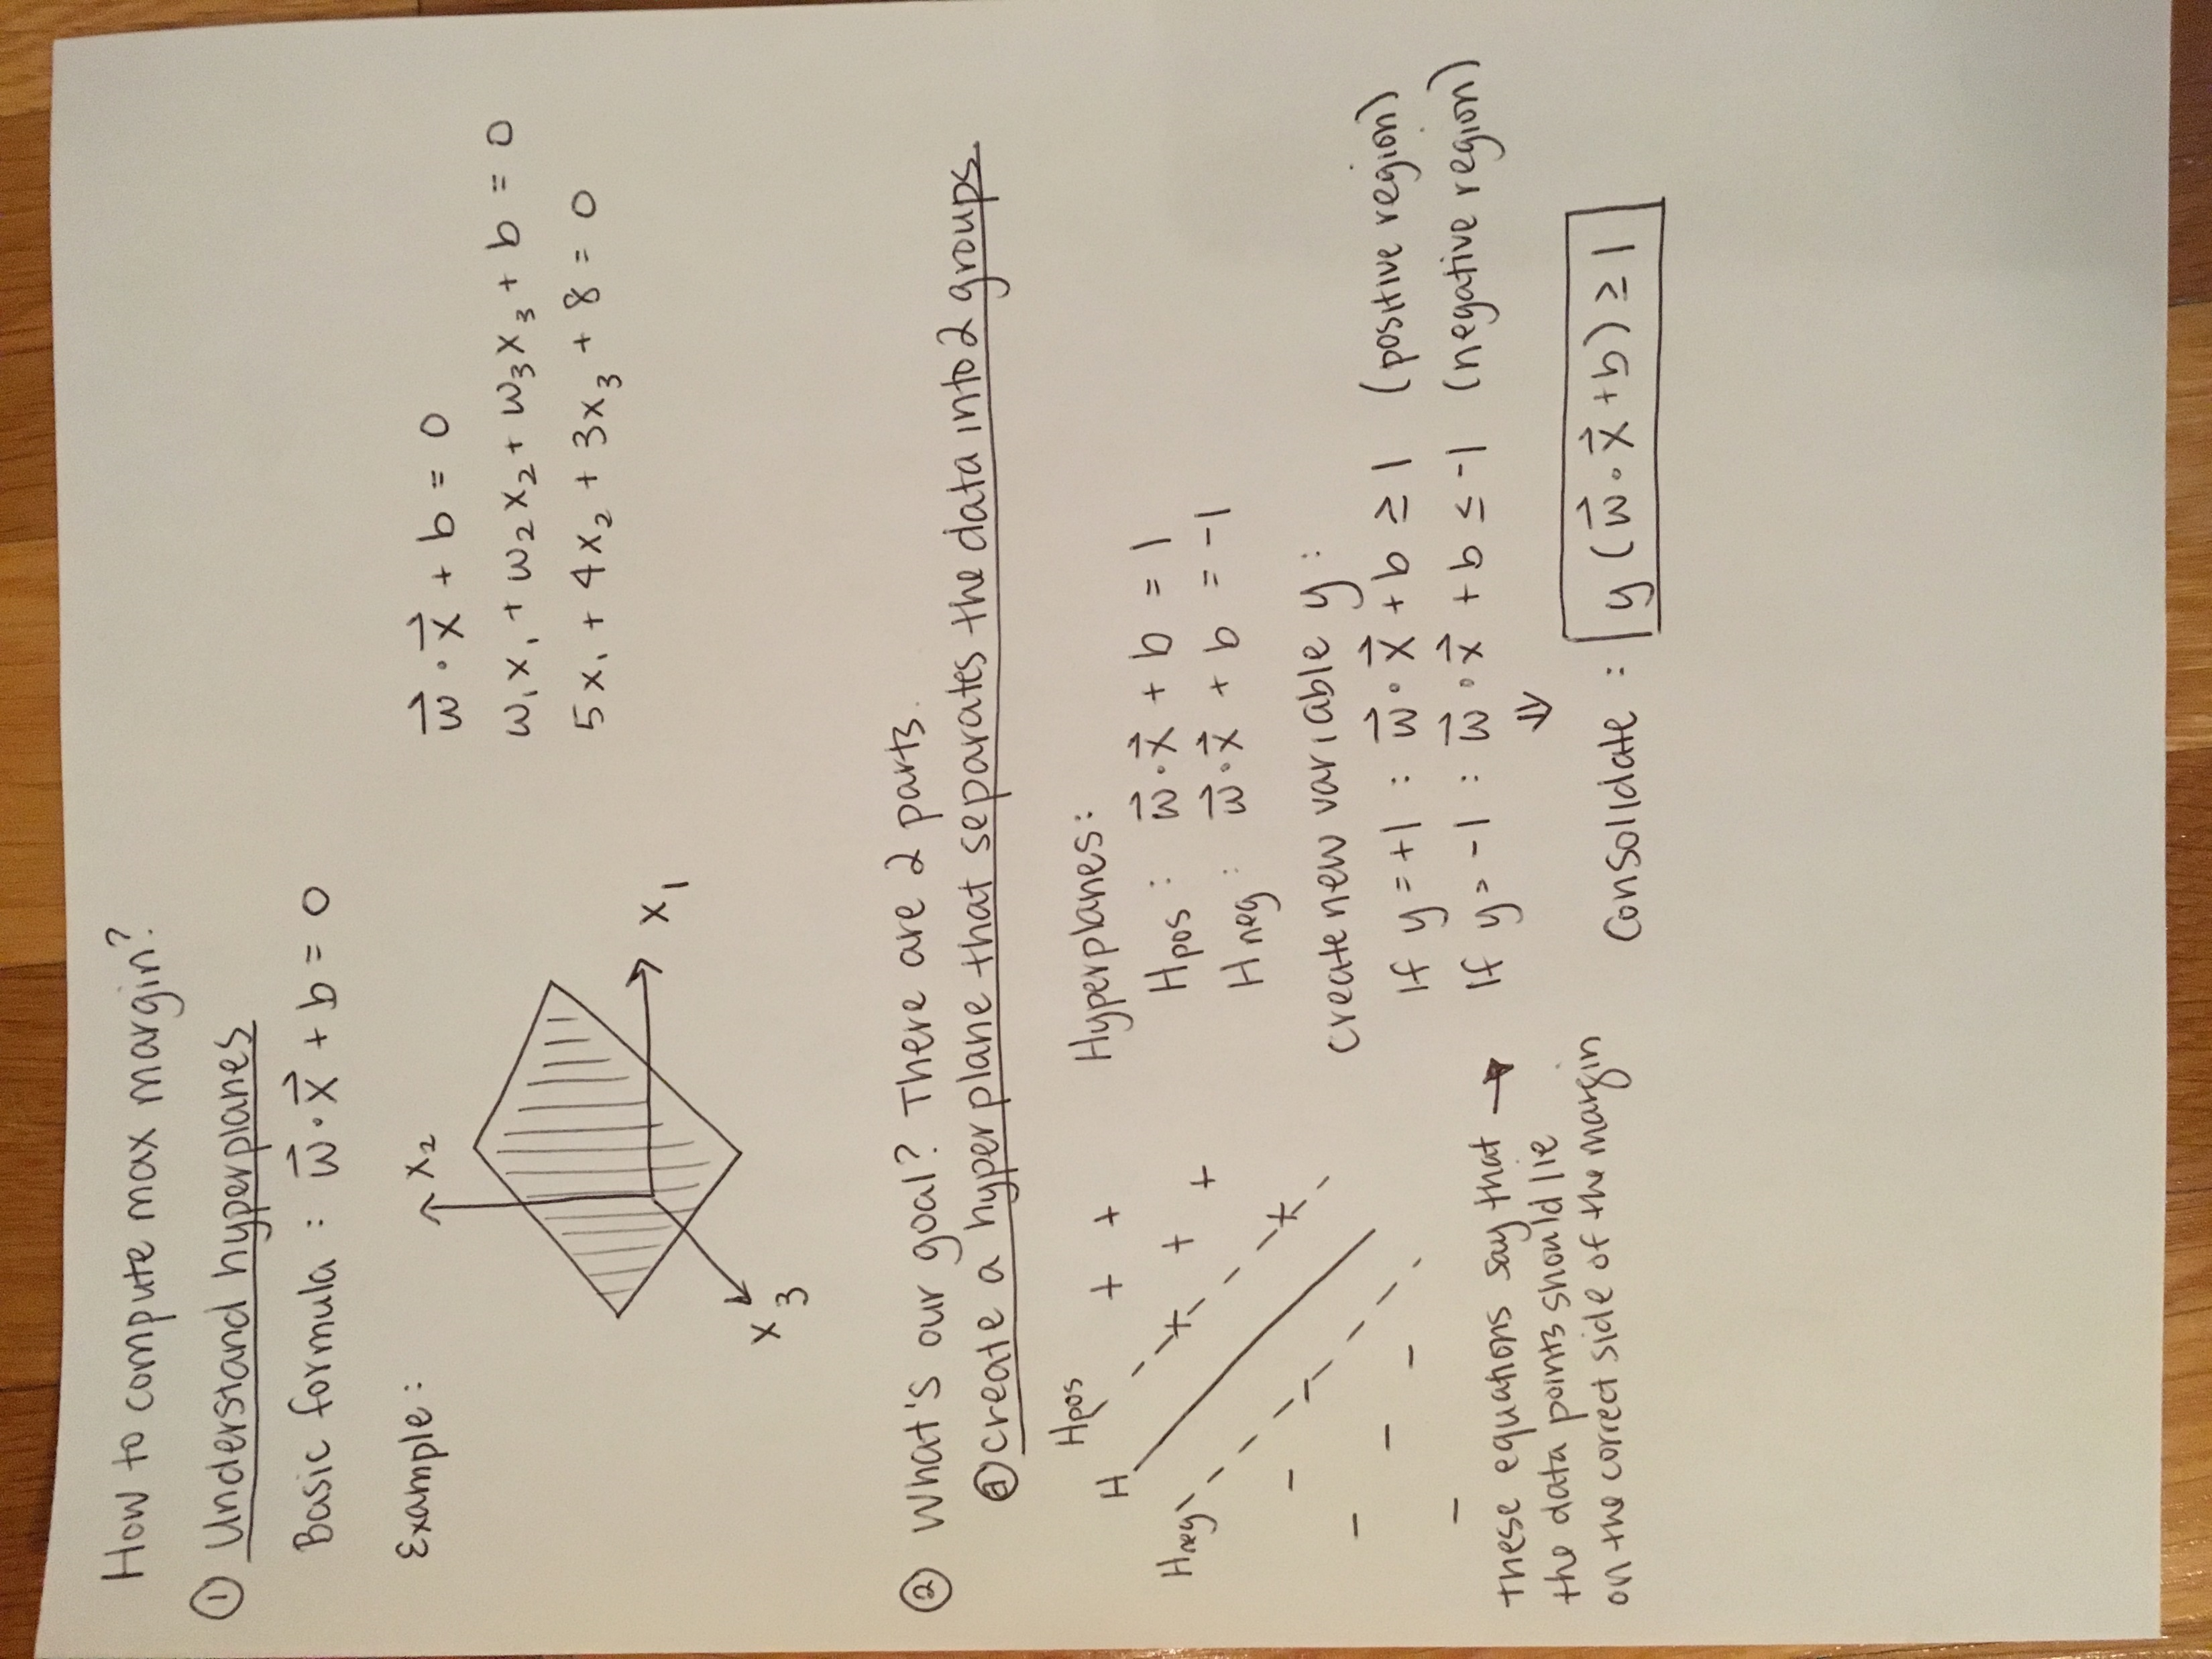 How to compute max margin?
① Understand hyperplanes
Basic formula : w⃗ · x⃗ + b = 0
Example :
x₂
x₁
x₃
w⃗ · x⃗ + b = 0
w₁x₁ + w₂x₂ + w₃x₃ + b = 0
5x₁ + 4x₂ + 3x₃ + 8 = 0
② What's our goal? There are 2 parts.
ⓐ create a hyperplane that separates the data into 2 groups.
Hpos
H
Hneg
Hyperplanes:
Hpos : w⃗ · x⃗ + b = 1
Hneg : w⃗ · x⃗ + b = -1
create new variable y :
If y = +1 : w⃗ · x⃗ + b ≥ 1 (positive region)
If y = -1 : w⃗ · x⃗ + b ≤ -1 (negative region)
⇓
these equations say that →
the data points should lie
on the correct side of the margin
Consolidate : y (w⃗ · x⃗ + b) ≥ 1